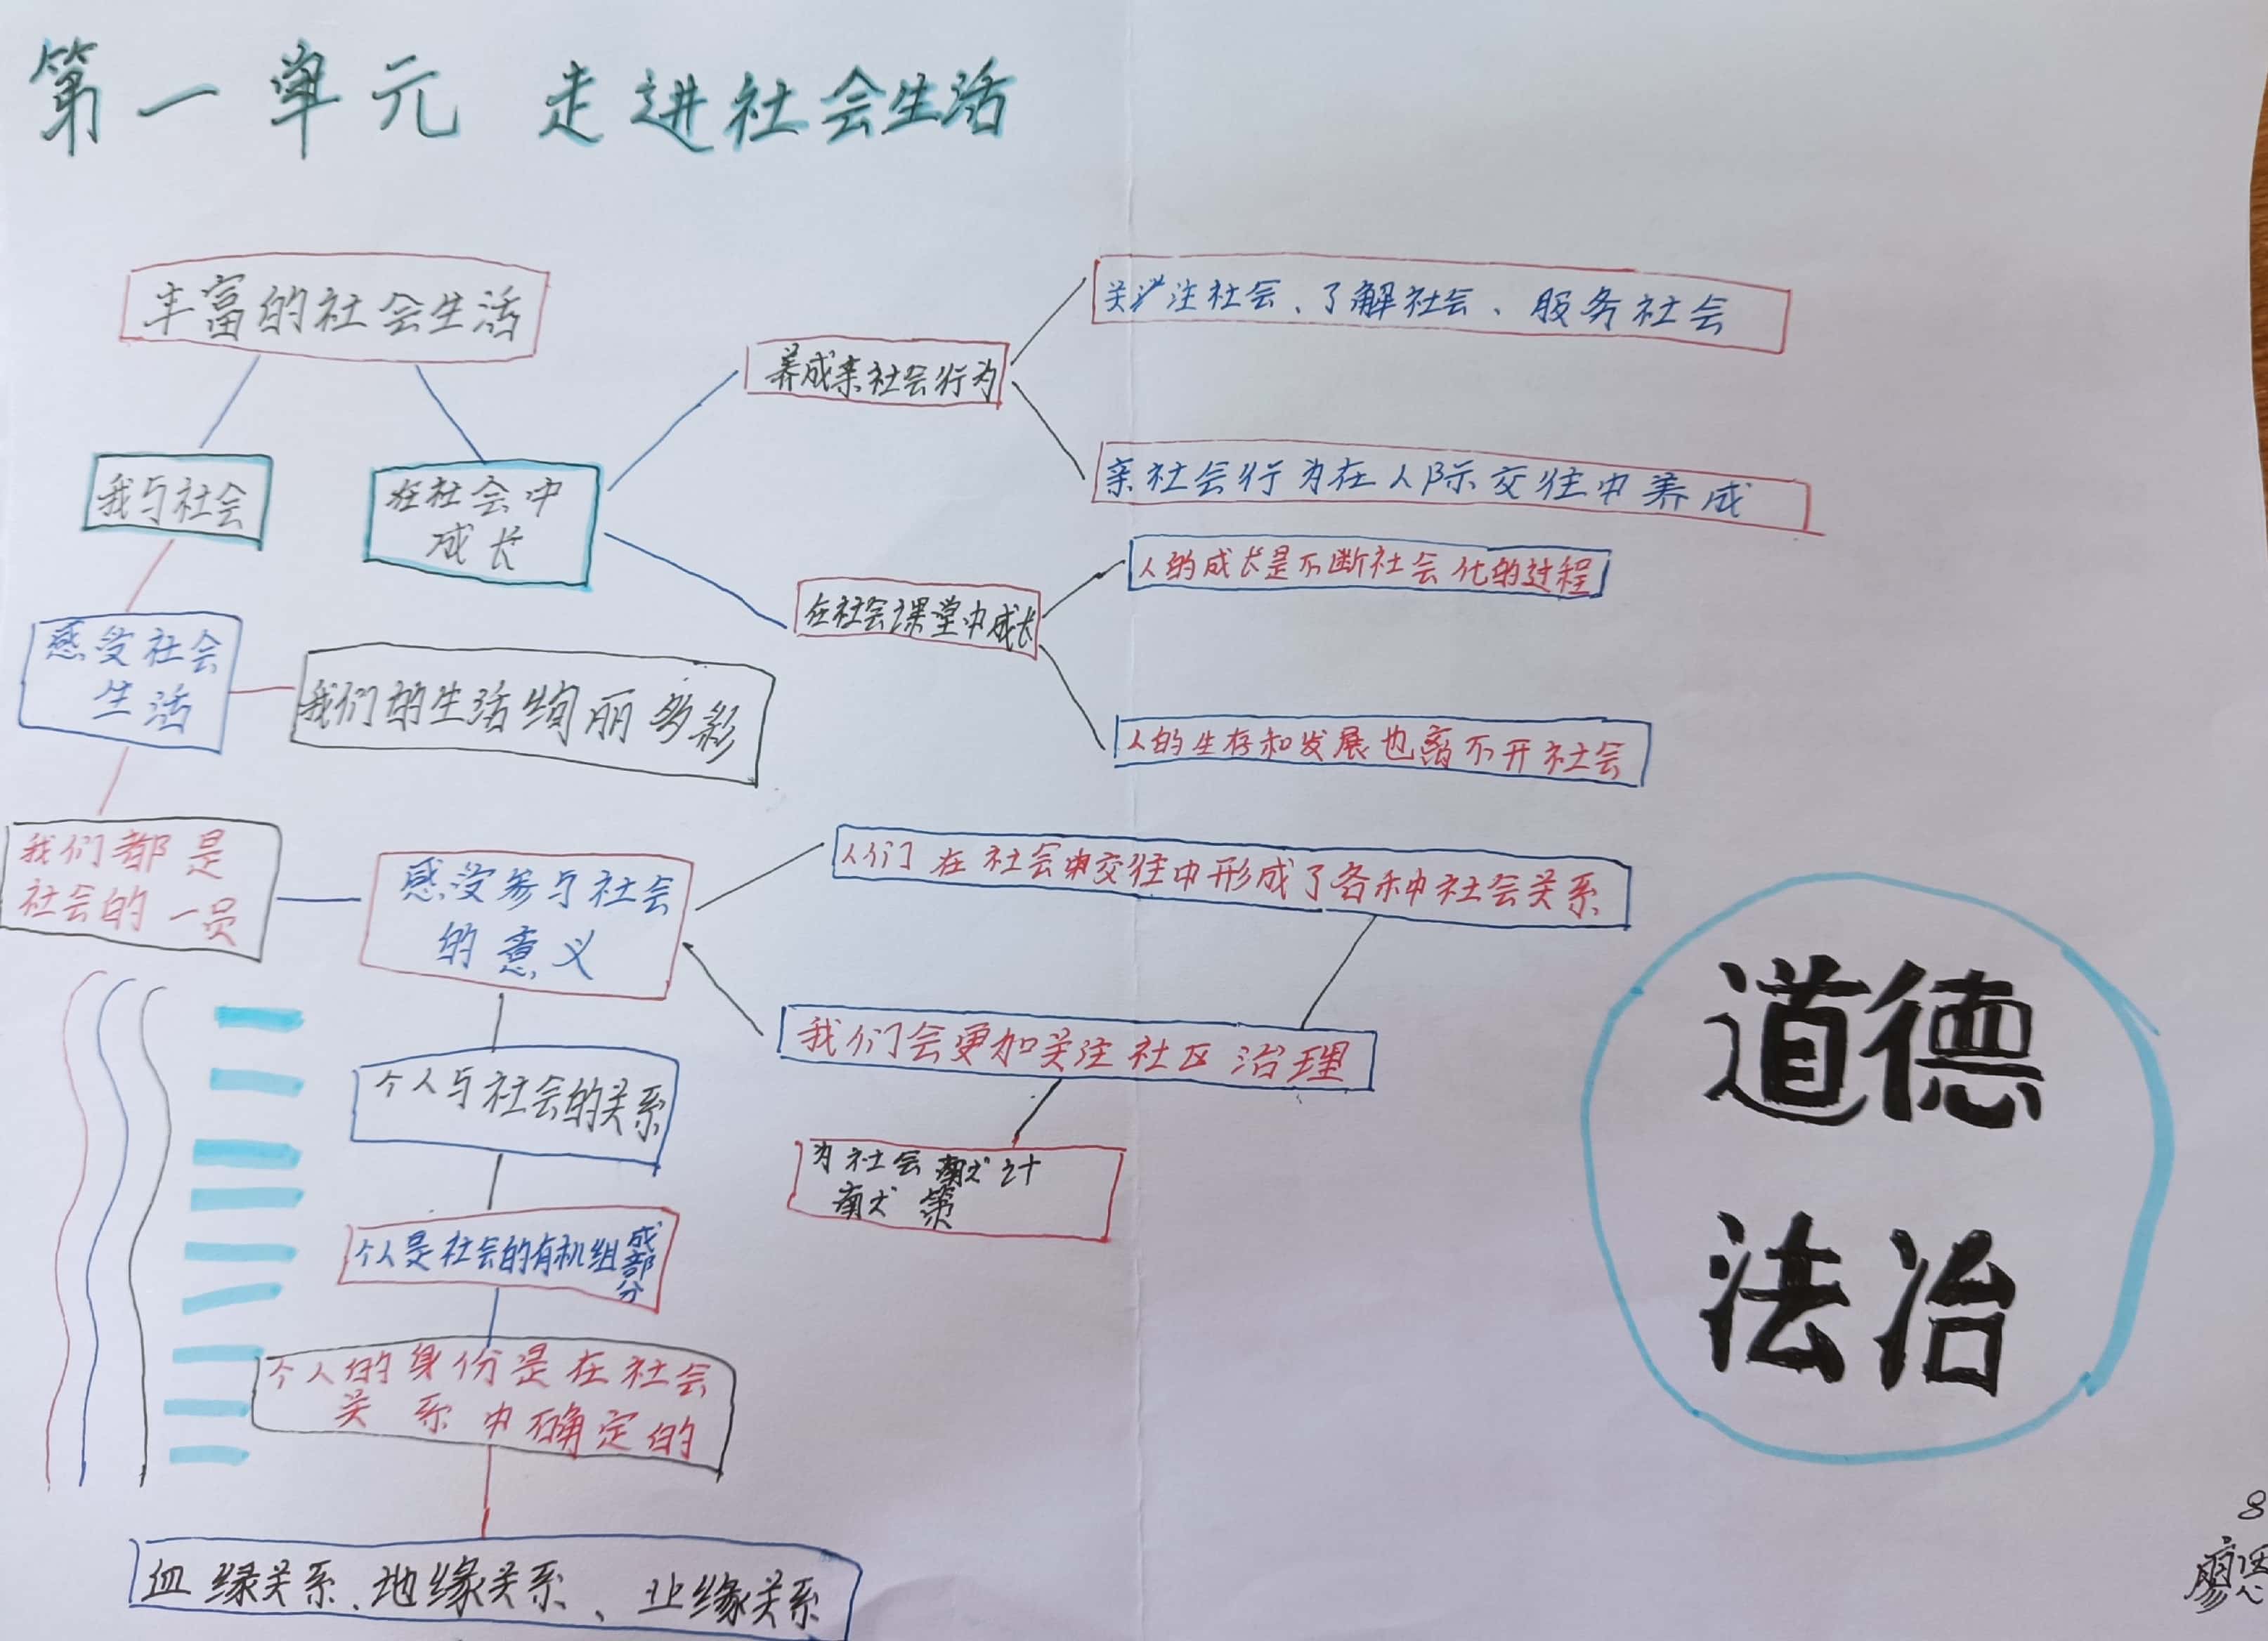 第一单元 走进社会生活
丰富的社会生活
我与社会
在社会中
成长
养成亲社会行为
关注社会、了解社会、服务社会
亲社会行为在人际交往中养成
在社会课堂中成长
人的成长是不断社会化的过程
人的生存和发展也离不开社会
感受社会
生活
我们的生活绚丽多彩
我们都是
社会的一员
感受参与社会
的意义
人们在社会中交往中形成了各种社会关系
我们会更加关注社区治理
为社会献计
献策
个人与社会的关系
个人是社会的有机组成
部
分
个人的身份是在社会
关系中确定的
血缘关系、地缘关系、业缘关系
道德
法治
8
廖思